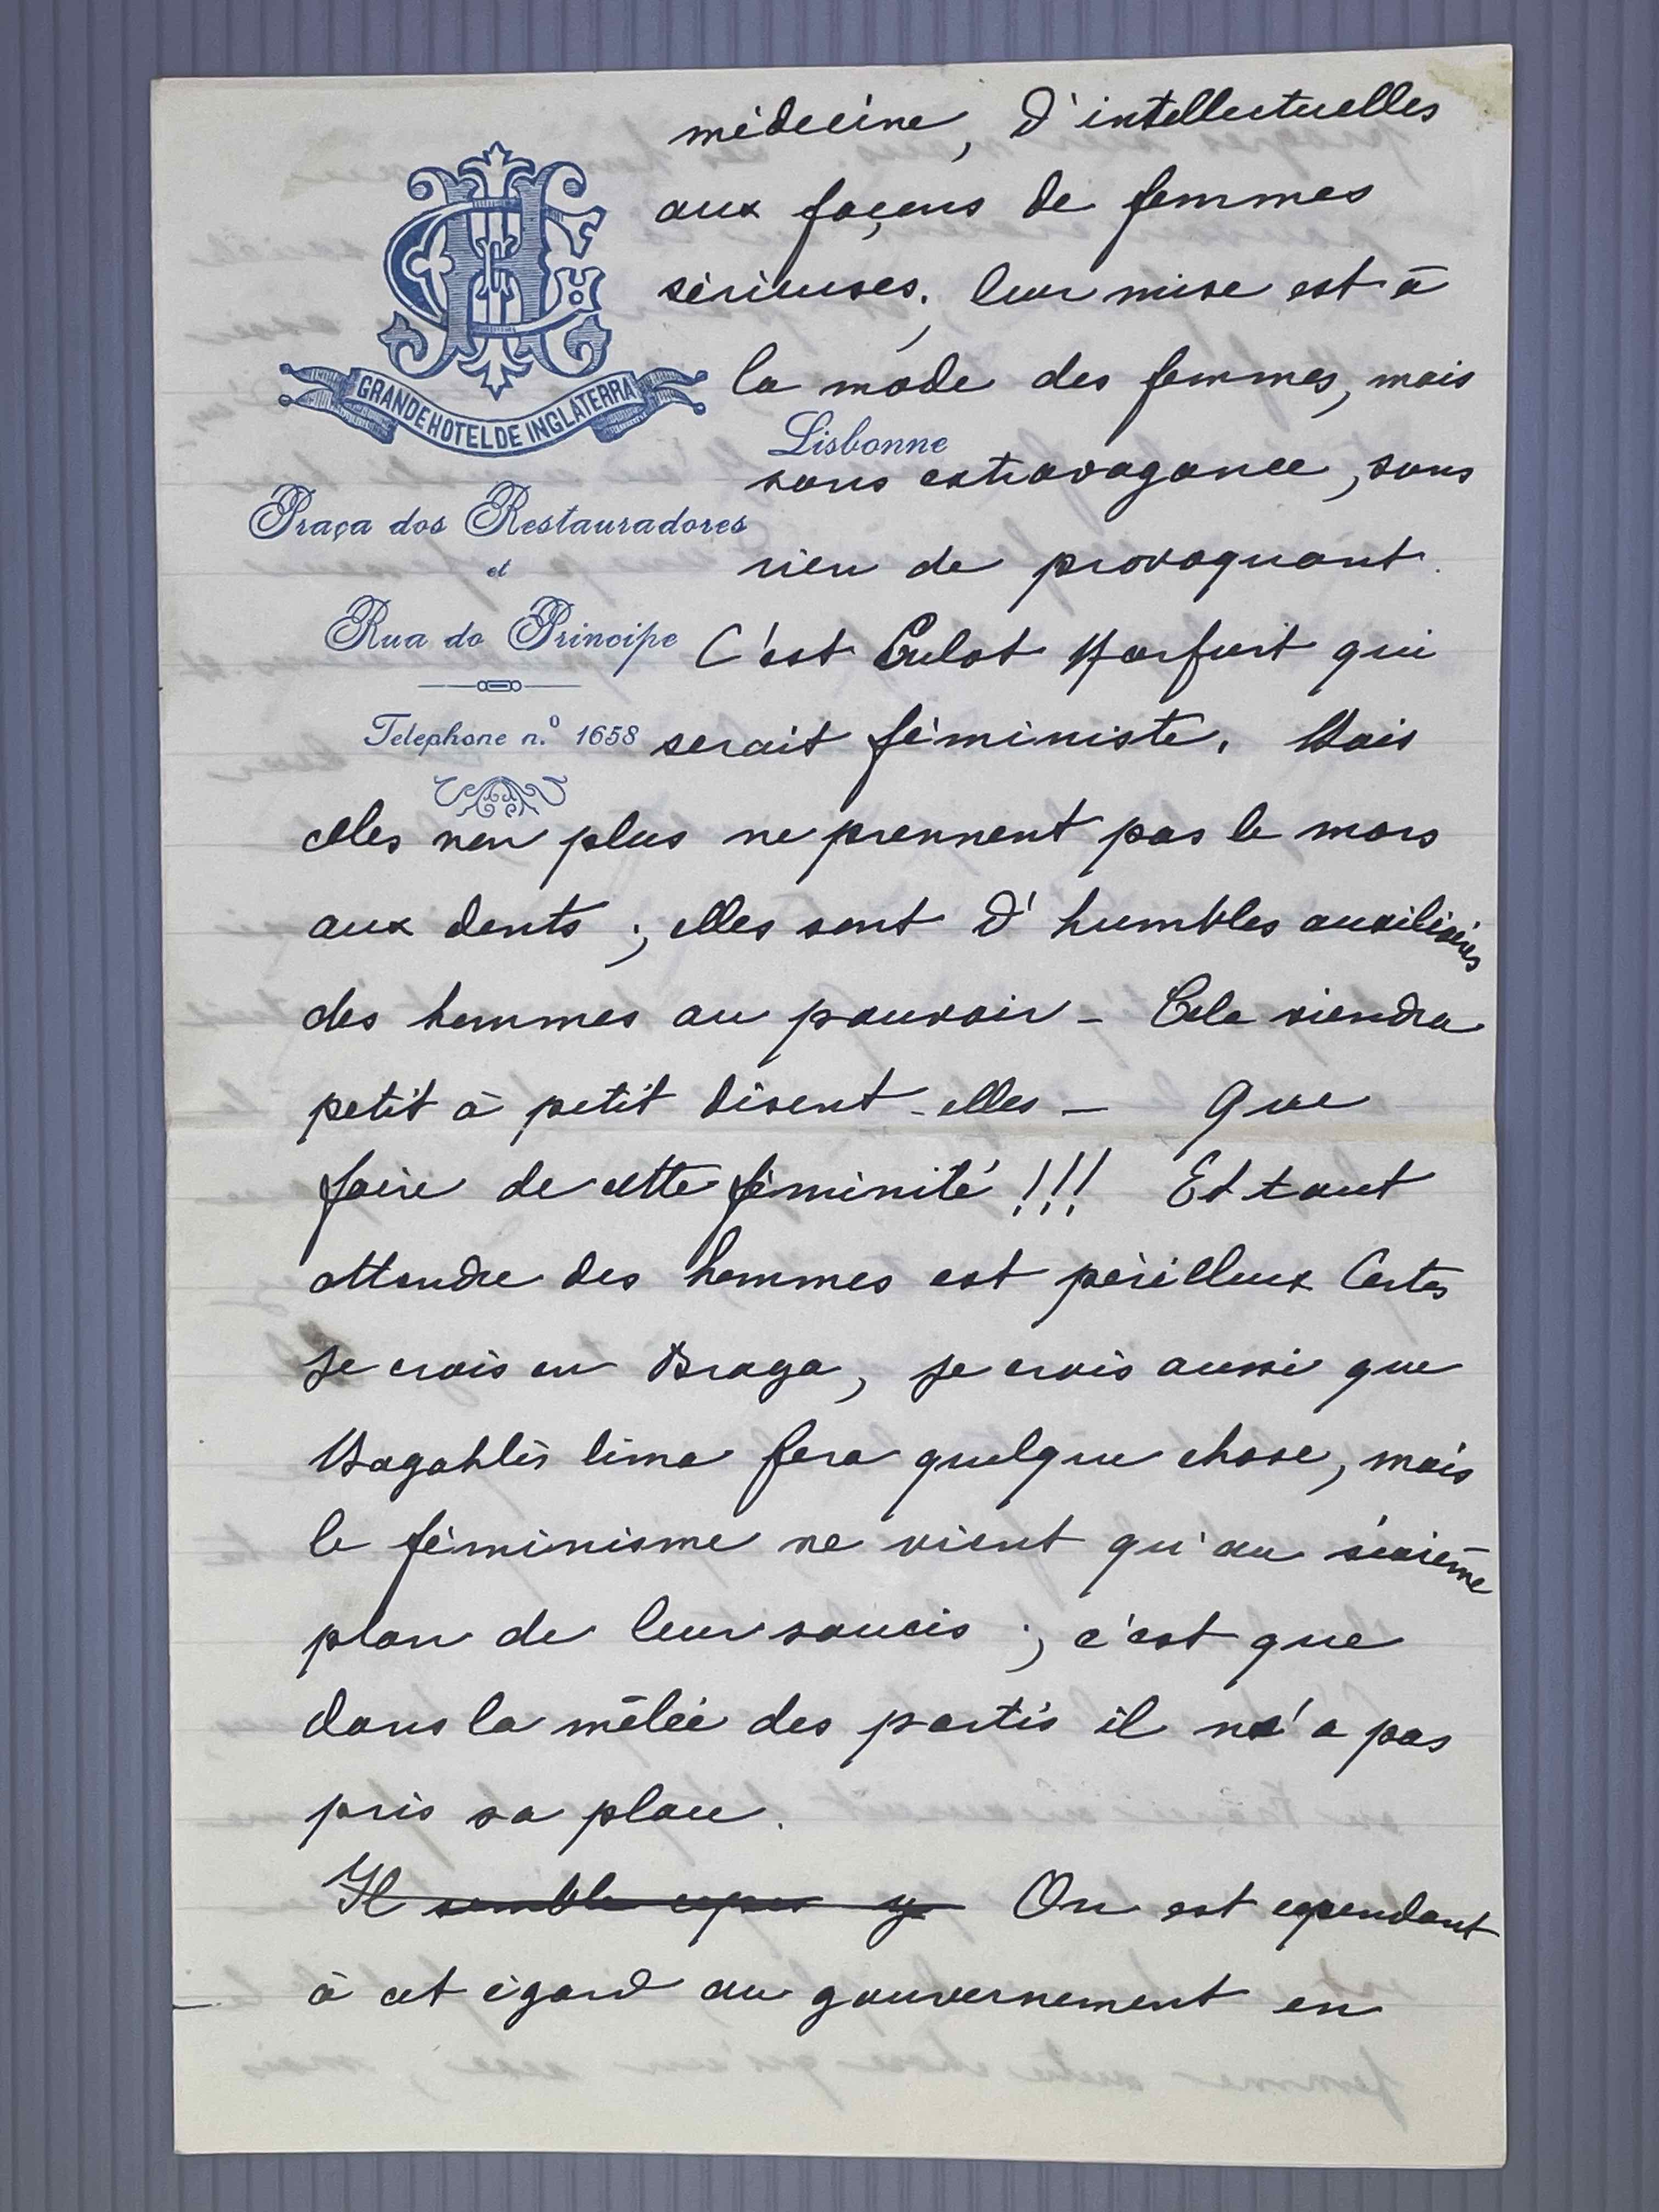 médecine, d'intellectuelles
aux façons de femmes
sérieuses. leur mise est à
la mode des femmes, mais
GRANDE HOTEL DE INGLATERRA
Lisbonne
sans extravagance, sans
Praça dos Restauradores
rien de provoquant.
et
Rua do Principe
C'est Culot Harfurt qui
Telephone n.º 1658
serait féministe. Mais
elles non plus ne prennent pas le mors
aux dents ; elles sont d'humbles auxiliaires
des hommes au pouvoir - Cela viendra
petit à petit disent-elles - Que
faire de cette féminité !!! Et tout
attendre des hommes est périlleux Certes
je crois en Braga, je crois aussi que
Magahlès lima fera quelque chose, mais
le féminisme ne vient qu'au sixième
plan de leur soucis ; c'est que
dans la mêlée des partis il n'a pas
pris sa place.
Il semble cepen y On est cependant
à cet égard au gouvernement en